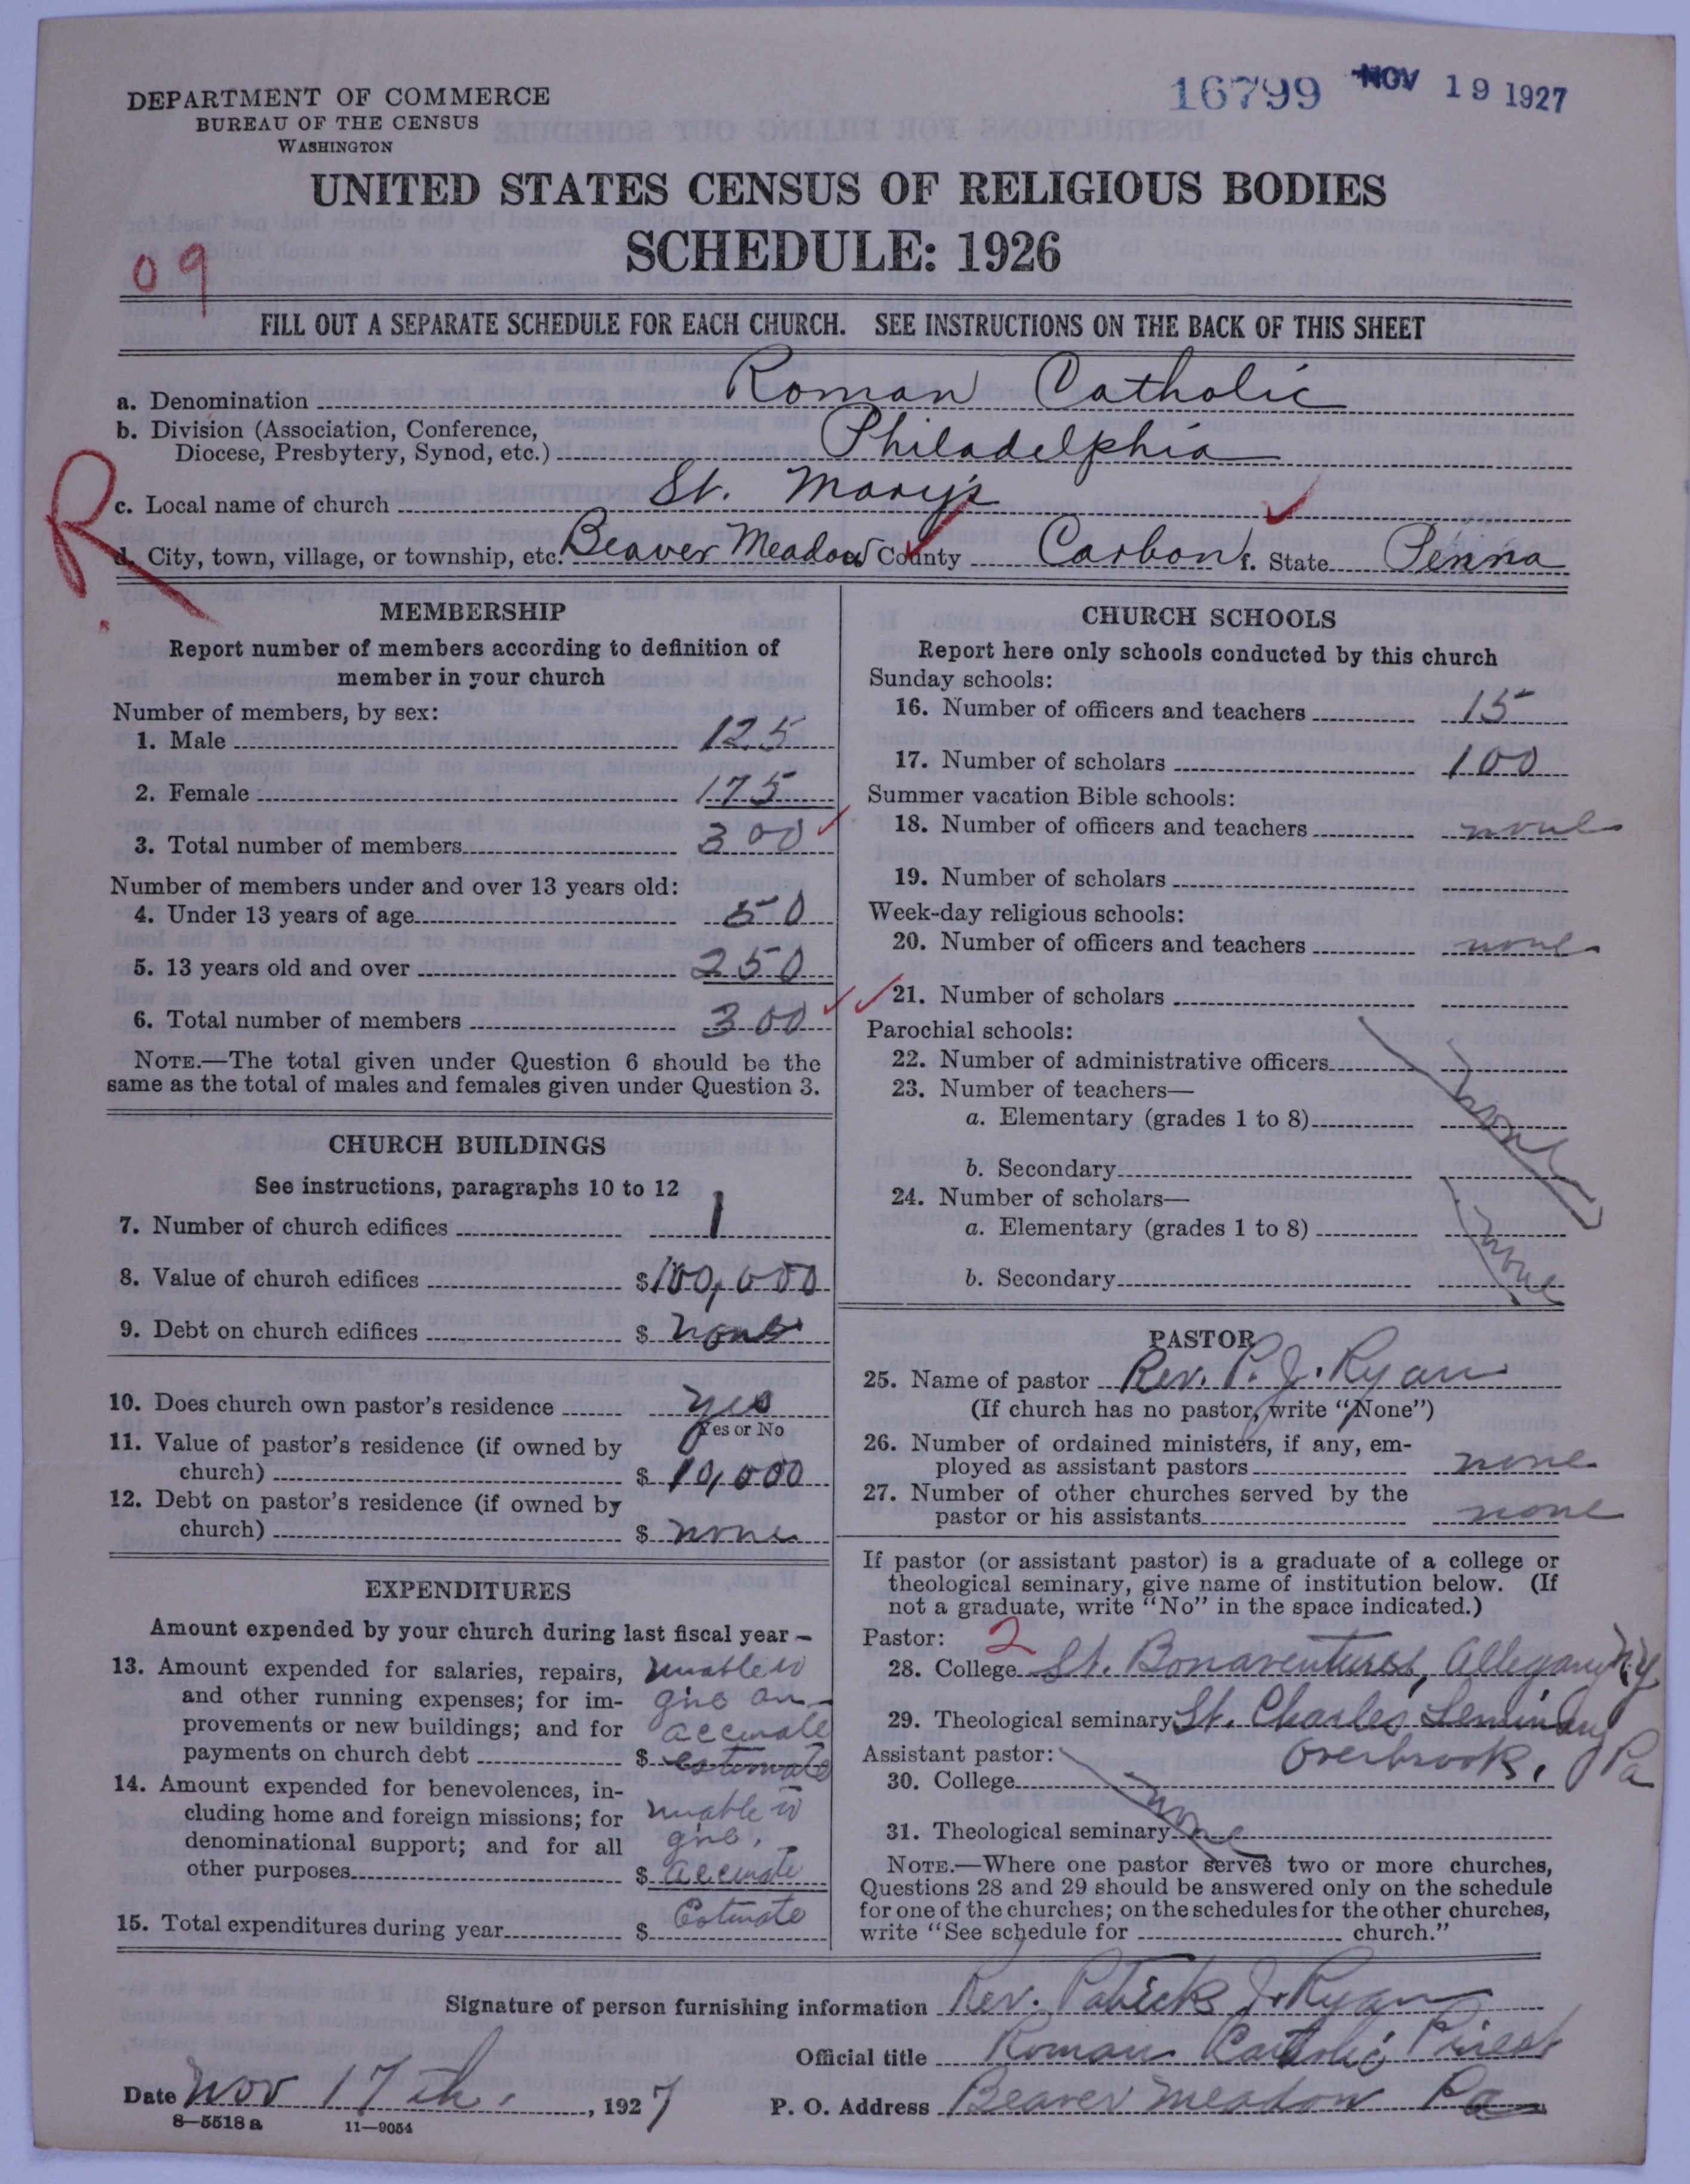 DEPARTMENT OF COMMERCE
BUREAU OF THE CENSUS
WASHINGTON
16799 NOV 19 1927
UNITED STATES CENSUS OF RELIGIOUS BODIES
SCHEDULE: 1926
09
FILL OUT A SEPARATE SCHEDULE FOR EACH CHURCH. SEE INSTRUCTIONS ON THE BACK OF THIS SHEET
a. Denomination Roman Catholic
b. Division (Association, Conference,
Diocese, Presbytery, Synod, etc.) Philadelphia
R
c. Local name of church St. Mary's
d. City, town, village, or township, etc. Beaver Meadow County Carbon f. State Penna
MEMBERSHIP
Report number of members according to definition of
member in your church
Number of members, by sex:
1. Male 125
2. Female 175
3. Total number of members 300
Number of members under and over 13 years old:
4. Under 13 years of age 50
5. 13 years old and over 250
6. Total number of members 300
NOTE.—The total given under Question 6 should be the
same as the total of males and females given under Question 3.
CHURCH BUILDINGS
See instructions, paragraphs 10 to 12
7. Number of church edifices 1
8. Value of church edifices $100,000
9. Debt on church edifices $ none
10. Does church own pastor's residence yes
Yes or No
11. Value of pastor's residence (if owned by
church) $ 10,000
12. Debt on pastor's residence (if owned by
church) $ none
EXPENDITURES
Amount expended by your church during last fiscal year—
13. Amount expended for salaries, repairs, unable to
and other running expenses; for im- give an
provements or new buildings; and for accurate
payments on church debt $ estimate
14. Amount expended for benevolences, in-
cluding home and foreign missions; for unable to
denominational support; and for all give
other purposes $ accurate
15. Total expenditures during year $ Estimate
CHURCH SCHOOLS
Report here only schools conducted by this church
Sunday schools:
16. Number of officers and teachers 15
17. Number of scholars 100
Summer vacation Bible schools:
18. Number of officers and teachers none
19. Number of scholars
Week-day religious schools:
20. Number of officers and teachers none
21. Number of scholars
Parochial schools:
22. Number of administrative officers
23. Number of teachers—
a. Elementary (grades 1 to 8) none
b. Secondary
24. Number of scholars—
a. Elementary (grades 1 to 8) none
b. Secondary
PASTOR
25. Name of pastor Rev. P. J. Ryan
(If church has no pastor, write "None")
26. Number of ordained ministers, if any, em-
ployed as assistant pastors none
27. Number of other churches served by the
pastor or his assistants none
If pastor (or assistant pastor) is a graduate of a college or
theological seminary, give name of institution below. (If
not a graduate, write "No" in the space indicated.)
Pastor: 2
28. College St. Bonaventures, Allegany N.Y
29. Theological seminary St. Charles Seminary
Assistant pastor: Overbrook, Pa
30. College none
31. Theological seminary
NOTE.—Where one pastor serves two or more churches,
Questions 28 and 29 should be answered only on the schedule
for one of the churches; on the schedules for the other churches,
write "See schedule for church."
Signature of person furnishing information Rev. Patrick J. Ryan
Official title Roman Catholic Priest
Date Nov 17th, 1927 P. O. Address Beaver Meadow Pa
8—5518a 11—9054